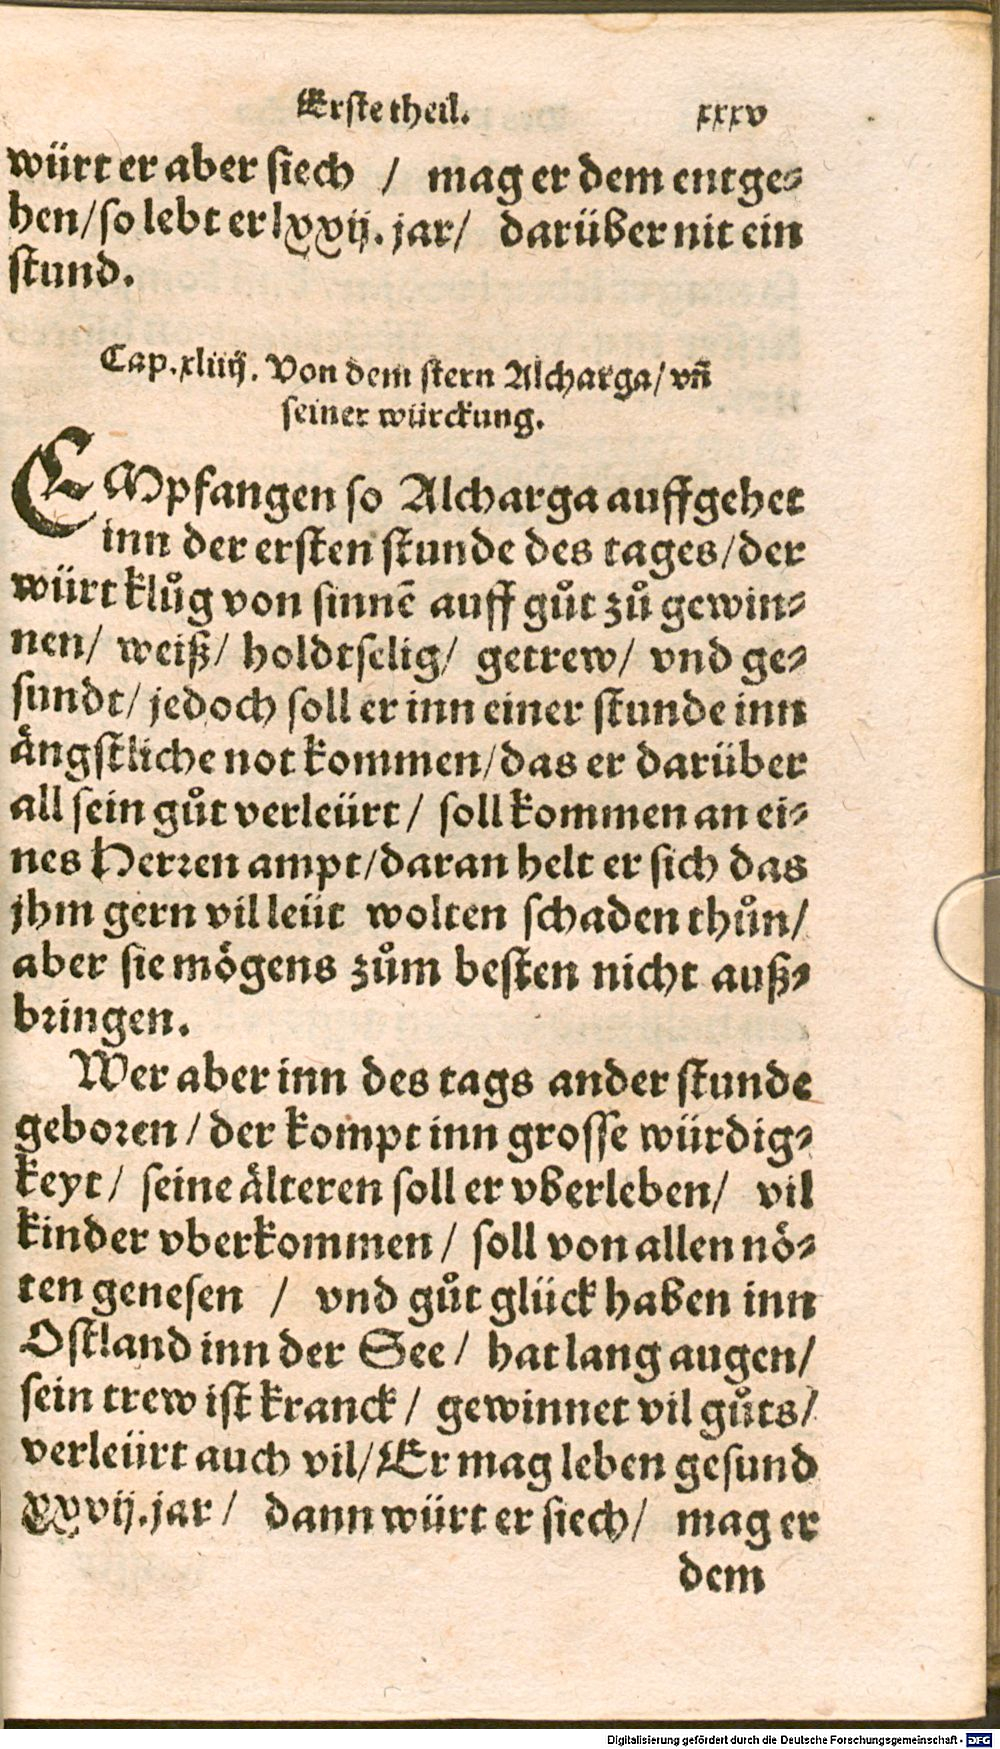 Erste theil. xxxv
würt er aber siech / mag er dem entge⸗
hen/so lebt er lxxij. jar/ darüber nit ein
stund.
Cap. xliiij. Von dem stern Alcharga/ vñ
seiner würckung.
EMpfangen so Alcharga auffgehet
inn der ersten stunde des tages/der
würt klůg von sinnẽ auff gůt zů gewin⸗
nen/ weiß/ holdtselig/ getrew/ vnd ge⸗
sundt/ jedoch soll er inn einer stunde inn
ängstliche not kommen/das er darüber
all sein gůt verleürt/ soll kommen an ei⸗
nes Herren ampt/daran helt er sich das
jhm gern vil leüt wolten schaden thůn/
aber sie mögens zům besten nicht auß⸗
bringen.
Wer aber inn des tags ander stunde
geboren / der kompt inn grosse würdig⸗
keyt/ seine älteren soll er vberleben/ vil
kinder vberkommen / soll von allen nö⸗
ten genesen / vnd gůt glück haben inn
Ostland inn der See / hat lang augen/
sein trew ist kranck / gewinnet vil gůts/
verleürt auch vil/Er mag leben gesund
xxvij.jar / dann würt er siech/ mag er
dem
Digitalisierung gefördert durch die Deutsche Forschungsgemeinschaft - DFG